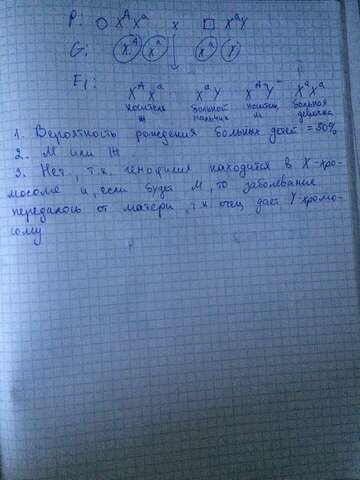 P: ○ XᴬXᵃ x □ XᵃY
G: Xᴬ Xᵃ Xᵃ Y
F1: XᴬXᵃ XᵃY XᴬY XᵃXᵃ
носитель больной носитель больная
Ж мальчик м девочка
1. Вероятность рождения больных детей = 50%
2. М или Ж
3. Нет, т.к. гемофилия находится в X-хро-
мосоме и, если будет М, то заболевание
передалось от матери, т.к отец дает Y-хромо-
сому